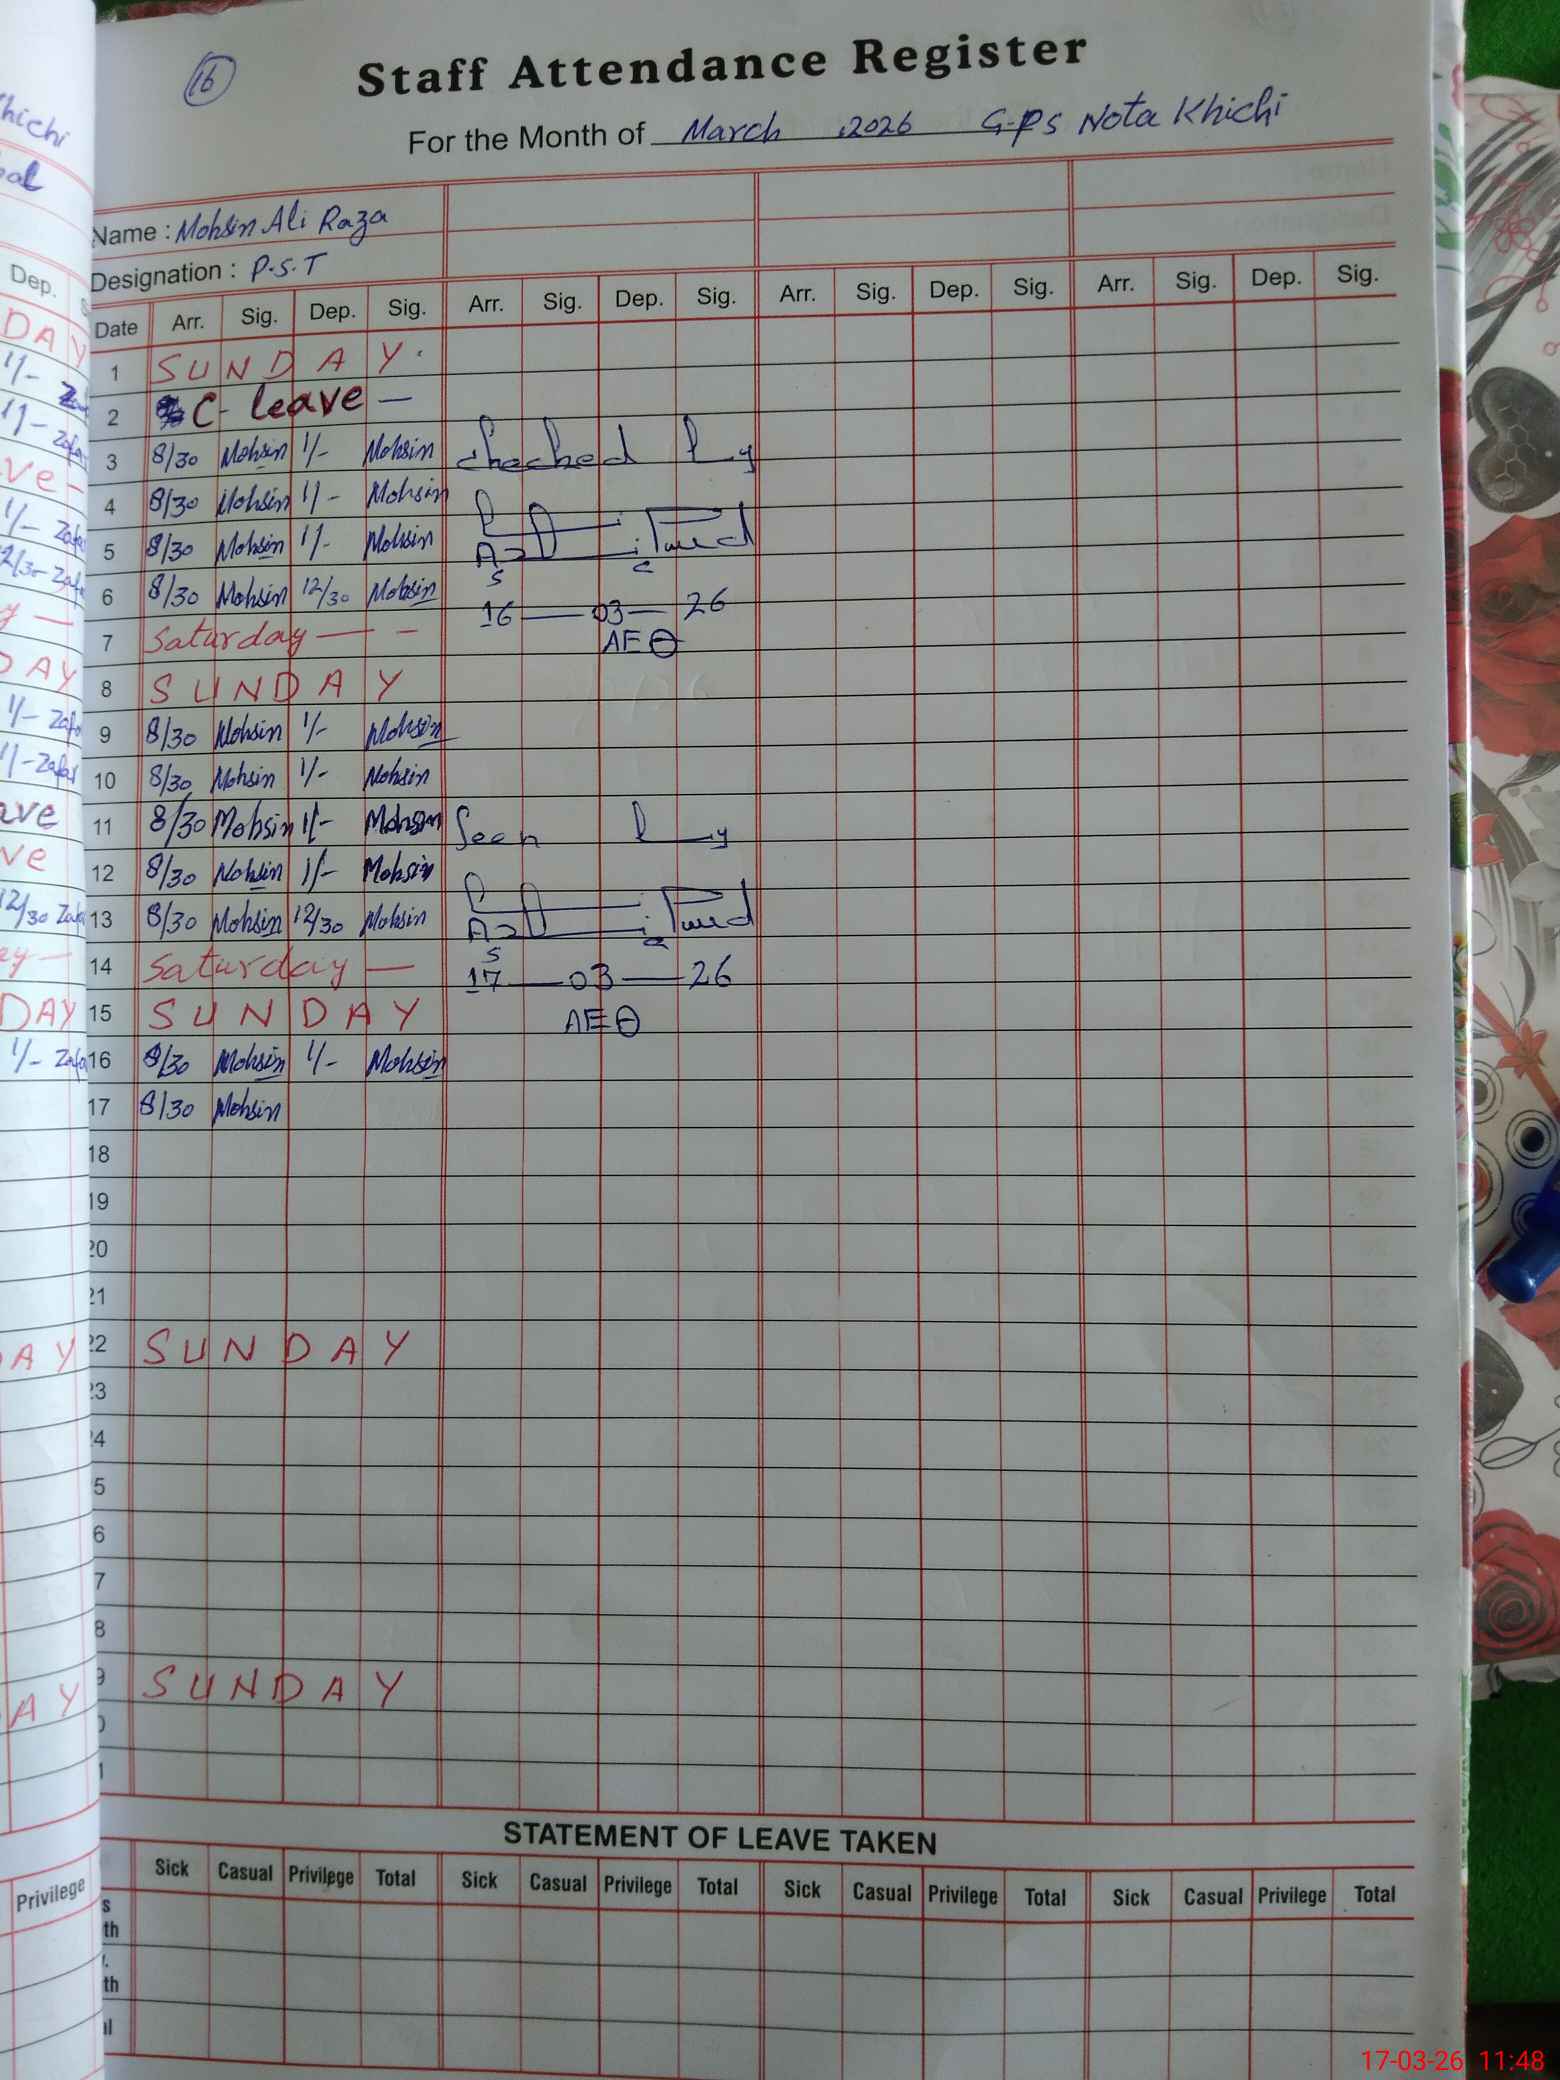 16
Staff Attendance Register
For the Month of March ,2026 G.P.S Nota Khichi
Name : Mohsin Ali Raza
Designation : P.S.T
Date Arr. Sig. Dep. Sig. Arr. Sig. Dep. Sig. Arr. Sig. Dep. Sig. Arr. Sig. Dep. Sig.
1 SUNDAY.
2 C- leave —
3 8/30 Mohsin 1/- Mohsin checked by
4 8/30 Mohsin 1/- Mohsin
5 8/30 Mohsin 1/- Mohsin
6 8/30 Mohsin 12/30 Mohsin 16 — 03 — 26
7 Saturday — - AEO
8 SUNDAY
9 8/30 Mohsin 1/- Mohsin
10 8/30 Mohsin 1/- Mohsin
11 8/30 Mohsin 1/- Mohsin Seen by
12 8/30 Mohsin 1/- Mohsin
13 8/30 Mohsin 12/30 Mohsin
14 Saturday — 17 — 03 — 26
15 SUNDAY AEO
16 8/30 Mohsin 1/- Mohsin
17 8/30 Mohsin
18
19
20
21
22 SUNDAY
23
24
5
6
7
8
9 SUNDAY
STATEMENT OF LEAVE TAKEN
Sick Casual Privilege Total Sick Casual Privilege Total Sick Casual Privilege Total Sick Casual Privilege Total
s
th
th
Khichi
Dep.
DAY
1/-
1/- Zafar
ve -
1/- Zafar
12/30 Zafar
DAY
1/- Zafar
1/- Zafar
ave
ve
12/30 Zafar
ay —
DAY
1/- Zafar
AY
AY
Privilege
17-03-26 11:48